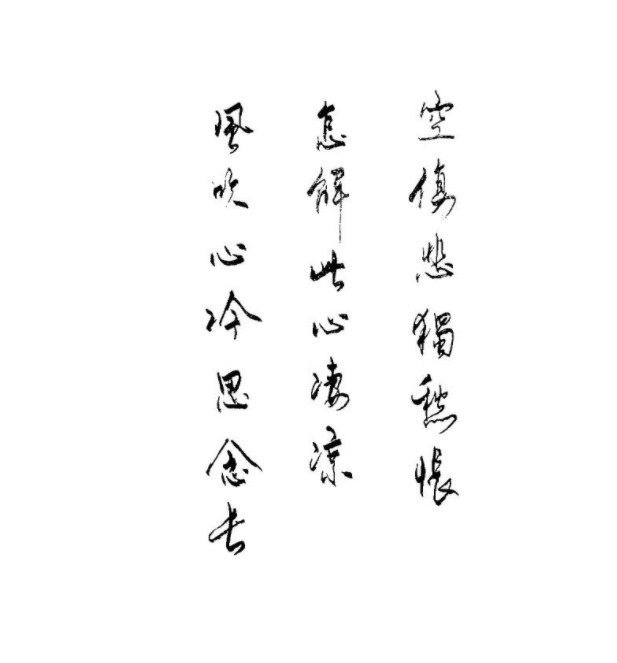 空傷悲獨愁悵
怎解此心凄凉
風吹心冷思念长